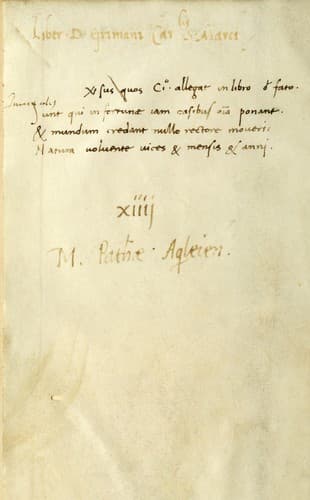 Liber D. Grimani Car^lis S. Marci
Xsus quos Ci^o. allegat in libro d fato.
Juuenalis
sunt qui in fortunae iam casibus oīa ponant.
& mundum credant nullo rectore moueri:
Natura voluente vices & mensis & anni.
xiiij
M. Patriae Aqleien.